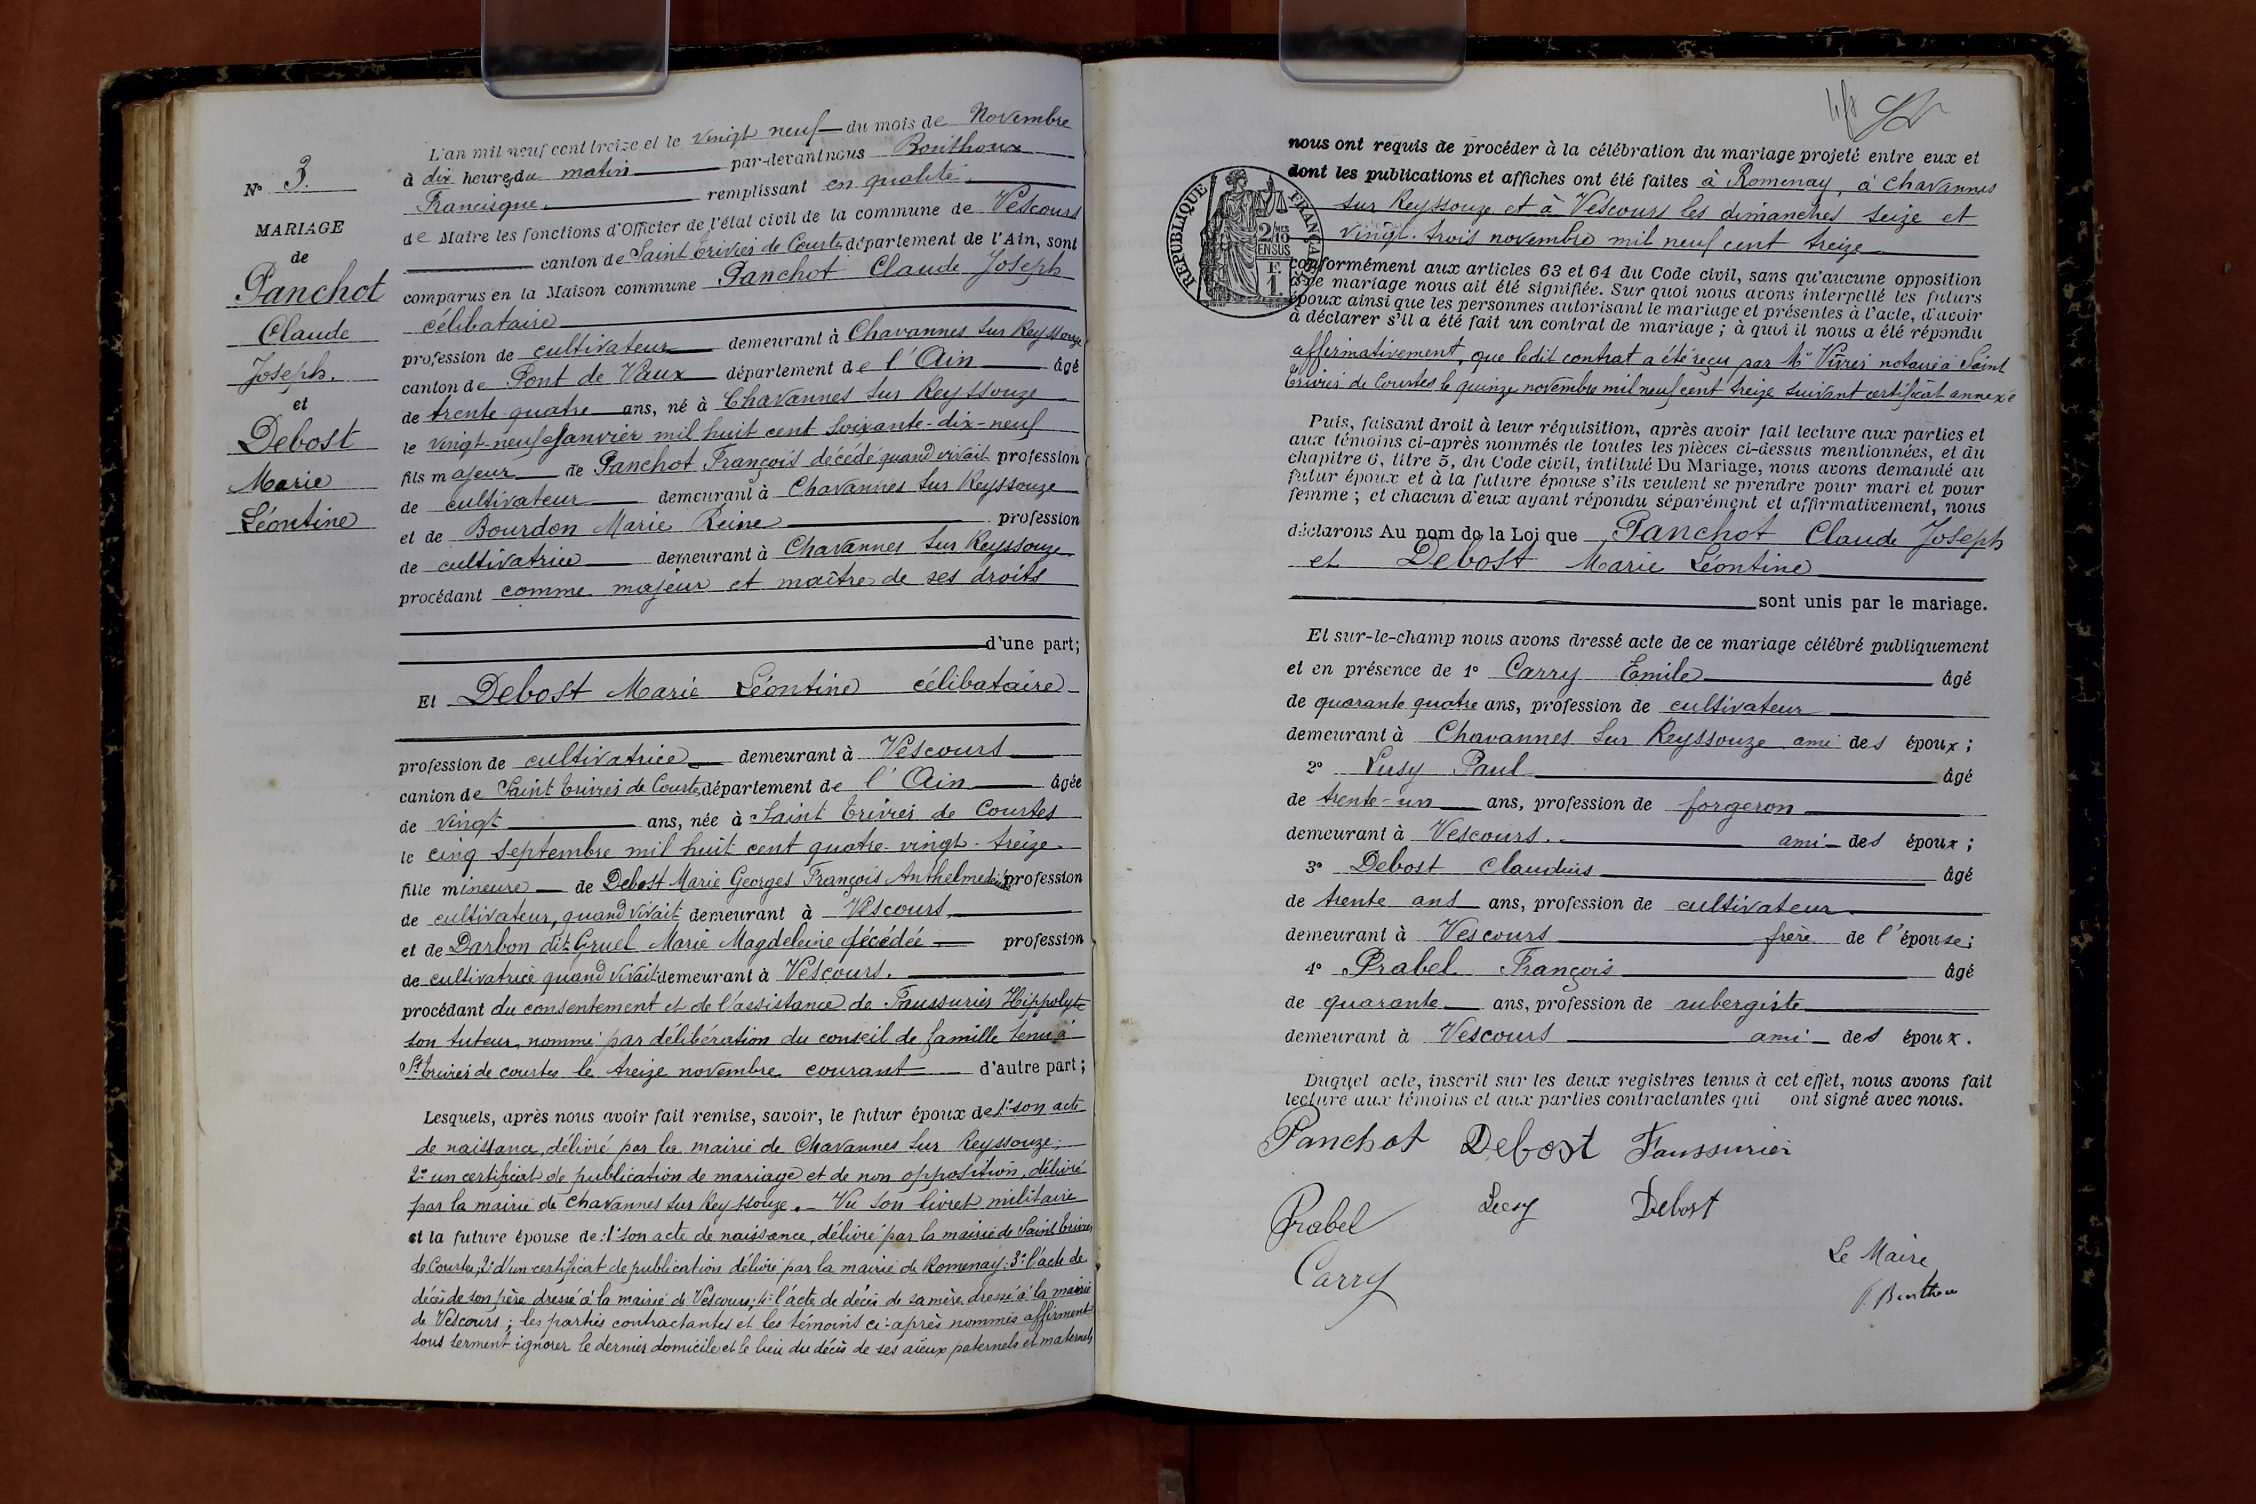 N° 3.
MARIAGE
de
Panchot
Claude
Joseph.
et
Debost
Marie
Léontine
L'an mil neuf cent treize et le vingt neuf du mois de Novembre
à dix heures du matin par-devant nous Bonthoux
Francisque, remplissant en qualité
de Maire les fonctions d'Officier de l'état civil de la commune de Vescours
canton de Saint Trivier de Courtes département de l'Ain, sont
comparus en la Maison commune Panchot Claude Joseph
célibataire
profession de cultivateur demeurant à Chavannes sur Reyssouze
canton de Pont de Vaux département de l'Ain âgé
de trente-quatre ans, né à Chavannes sur Reyssouze
le vingt-neuf Janvier mil huit cent soixante-dix-neuf
fils majeur de Panchot François décédé quand vivait profession
de cultivateur demeurant à Chavannes sur Reyssouze
et de Bourdon Marie Reine profession
de cultivatrice demeurant à Chavannes sur Reyssouze
procédant comme majeur et maître de ses droits
d'une part;
Et Debost Marie Léontine célibataire
profession de cultivatrice demeurant à Vescours
canton de Saint Trivier de Courtes département de l'Ain âgée
de vingt ans, née à Saint Trivier de Courtes
le cinq septembre mil huit cent quatre-vingt-treize
fille mineure de Debost Marie Georges François Anthelme décédé profession
de cultivateur, quand vivait demeurant à Vescours
et de Darbon dit Gruel Marie Magdeleine décédée profession
de cultivatrice quand vivait demeurant à Vescours.
procédant du consentement et de l'assistance de Faussurier Hippolyte
son tuteur, nommé par délibération du conseil de famille tenu à
St Trivier de courtes le treize novembre courant d'autre part;
Lesquels, après nous avoir fait remise, savoir, le futur époux de 1° son acte
de naissance, délivré par la mairie de Chavannes sur Reyssouze;
2° un certificat de publication de mariage et de non opposition, délivré
par la mairie de Chavannes sur Reyssouze. — Vu son livret militaire
et la future épouse de: 1° son acte de naissance, délivré par la mairie de Saint Trivier
de Courtes; 2° d'un certificat de publication délivré par la mairie de Romenay; 3° l'acte de
décès de son père dressé à la mairie de Vescours; 4° l'acte de décès de sa mère dressé à la mairie
de Vescours; les parties contractantes et les témoins ci-après nommés affirment
sous serment ignorer le dernier domicile et le lieu du décès de ses aïeux paternels et maternels
nous ont requis de procéder à la célébration du mariage projeté entre eux et
dont les publications et affiches ont été faites à Romenay, à Chavannes
sur Reyssouze et à Vescours les dimanches seize et
vingt-trois novembre mil neuf cent treize
RÉPUBLIQUE FRANÇAISE
2/10 EN SUS
F. 1.
conformément aux articles 63 et 64 du Code civil, sans qu'aucune opposition
à ce mariage nous ait été signifiée. Sur quoi nous avons interpellé les futurs
époux ainsi que les personnes autorisant le mariage et présentes à l'acte, d'avoir
à déclarer s'il a été fait un contrat de mariage; à quoi il nous a été répondu
affirmativement, que ledit contrat a été reçu par Me Vivier notaire à Saint
Trivier de Courtes le quinze novembre mil neuf cent treize suivant certificat annexé
Puis, faisant droit à leur réquisition, après avoir fait lecture aux parties et
aux témoins ci-après nommés de toutes les pièces ci-dessus mentionnées, et du
chapitre 6, titre 5, du Code civil, intitulé Du Mariage, nous avons demandé au
futur époux et à la future épouse s'ils veulent se prendre pour mari et pour
femme; et chacun d'eux ayant répondu séparément et affirmativement, nous
déclarons Au nom de la Loi que Panchot Claude Joseph
et Debost Marie Léontine
sont unis par le mariage.
Et sur-le-champ nous avons dressé acte de ce mariage célébré publiquement
et en présence de 1° Carry Emile âgé
de quarante quatre ans, profession de cultivateur
demeurant à Chavannes sur Reyssouze ami des époux;
2° Lusy Paul âgé
de trente-un ans, profession de forgeron
demeurant à Vescours. ami des époux;
3° Debost Claudius âgé
de trente ans ans, profession de cultivateur
demeurant à Vescours frère de l'épouse;
4° Prabel François âgé
de quarante ans, profession de aubergiste
demeurant à Vescours ami des époux.
Duquel acte, inscrit sur les deux registres tenus à cet effet, nous avons fait
lecture aux témoins et aux parties contractantes qui ont signé avec nous.
Panchot Debost Faussurier
Prabel Lusy Debost
Carry
Le Maire